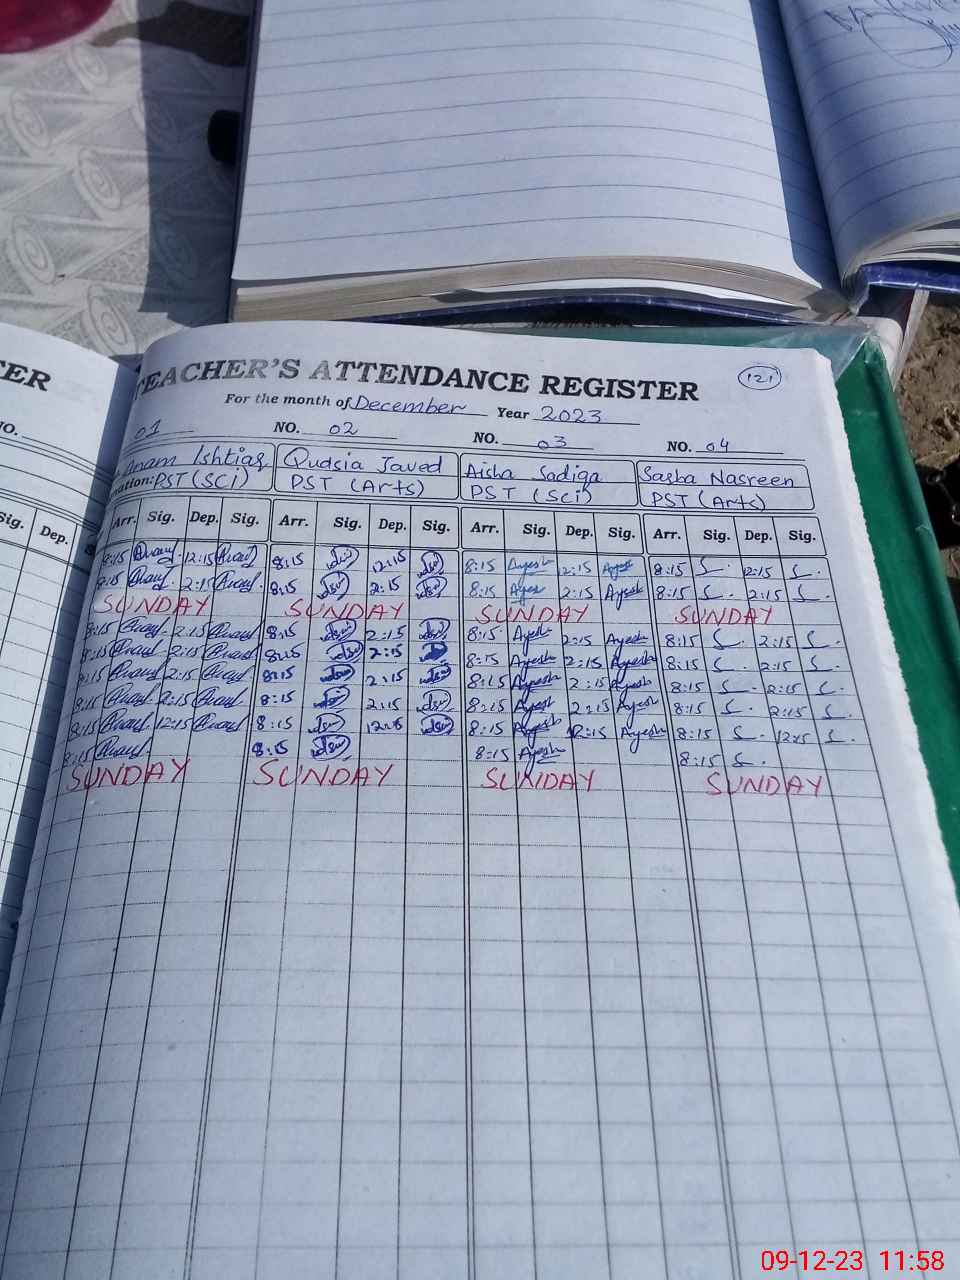 TER
TEACHER'S ATTENDANCE REGISTER
121
For the month of December Year 2023
NO.
01 NO. 02 NO. 03 NO. 04
Anam Ishtiaq Qudsia Javed Aisha Sadiqa Nasreen
nation: PST (SCI) PST (Arts) PST (Sci) PST (Arts)
Sig. Dep. Arr. Sig. Dep. Sig. Arr. Sig. Dep. Sig. Arr. Sig. Dep. Sig. Arr. Sig. Dep. Sig.
8:15 12:15 8:15 12:15 8:15 Ayesh 12:15 Ayesh 8:15 S. 12:15 S.
8:15 2:15 8:15 2:15 8:15 Ayesh 2:15 Ayesh 8:15 S. 2:15 S.
SUNDAY SUNDAY SUNDAY SUNDAY
8:15 2:15 8:15 2:15 8:15 Ayesh 2:15 Ayesh 8:15 S. 2:15 S.
8:15 2:15 8:15 2:15 8:15 Ayesh 2:15 Ayesh 8:15 S. 2:15 S.
8:15 2:15 8:15 2:15 8:15 Ayesh 2:15 Ayesh 8:15 S. 2:15 S.
8:15 2:15 8:15 2:15 8:15 Ayesh 2:15 Ayesh 8:15 S. 2:15 S.
8:15 12:15 8:15 12:15 8:15 Ayesh 12:15 Ayesh 8:15 S. 12:15 S.
8:15 8:15 8:15 Ayesh 8:15 S.
SUNDAY SUNDAY SUNDAY SUNDAY
09-12-23 11:58